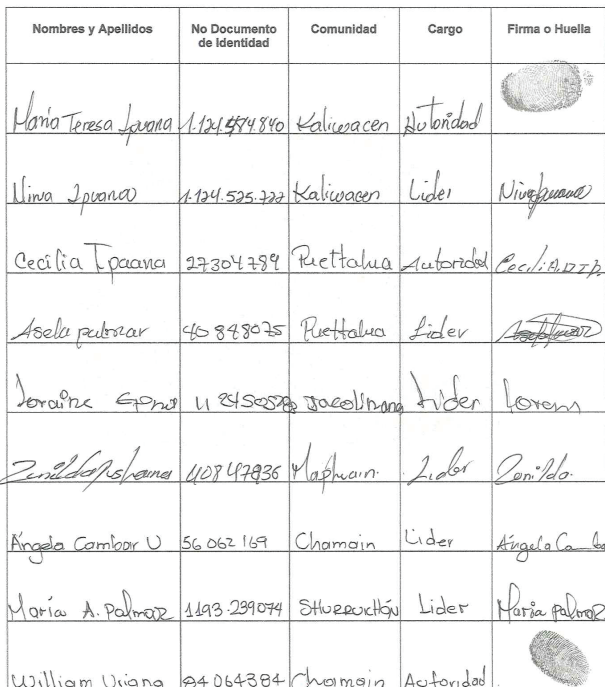 Nombres y Apellidos No Documento de Identidad Comunidad Cargo Firma o Huella
María Teresa Ipuana 1.124.484.840 Kaliwacen Autoridad
Ninva Ipuana 1.124.525.722 Kaliwacen Lider
Cecilia Ipaana 27304789 Puettalua Autoridad
Asela palmar 40848075 Puettalua Lider
Loraine Lider Lorens
Zenilda 40847836 Maphuain Lider Zenilda
Angela Cambar U 56 062 169 Chamain Lider Angela
María A. Palmar 1193.239074 Lider Maria palmar
William Uriana 84064384 Chamain Autoridad